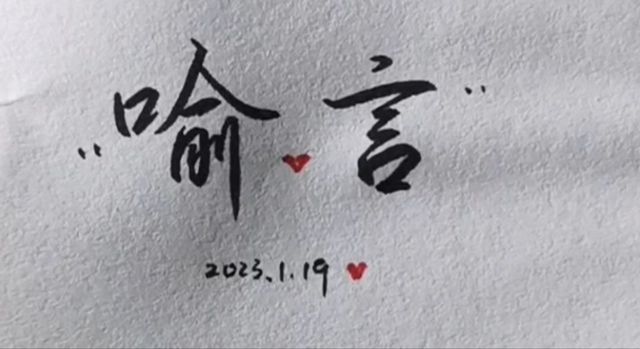 "喻❤言"
2023.1.19❤